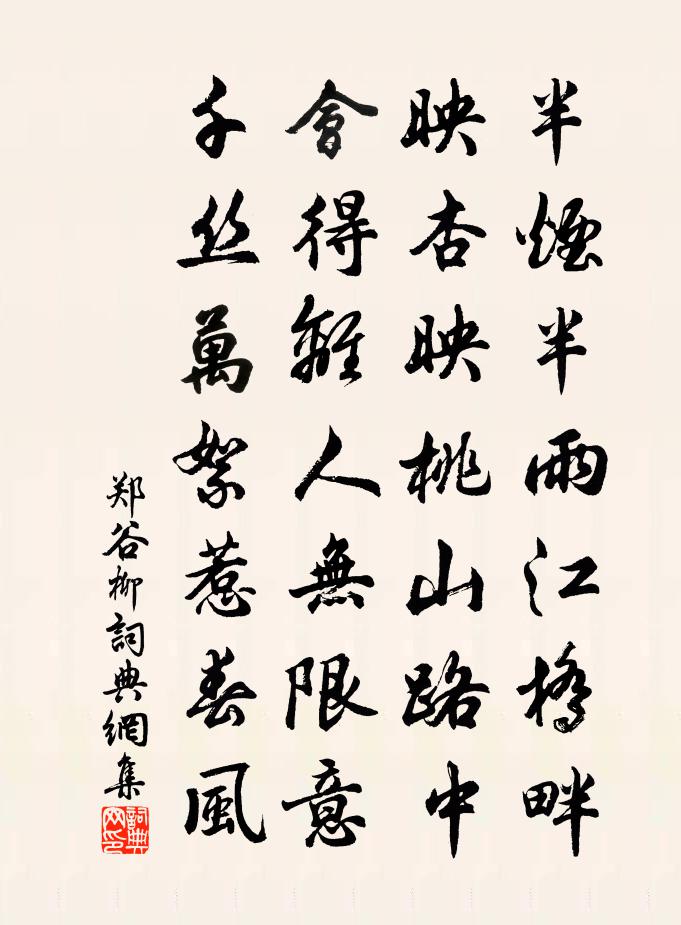 半煙半雨江橋畔
映杏映桃山路中
會得離人無限意
千丝萬絮惹春風
郑谷柳詞典網集
詞典網印